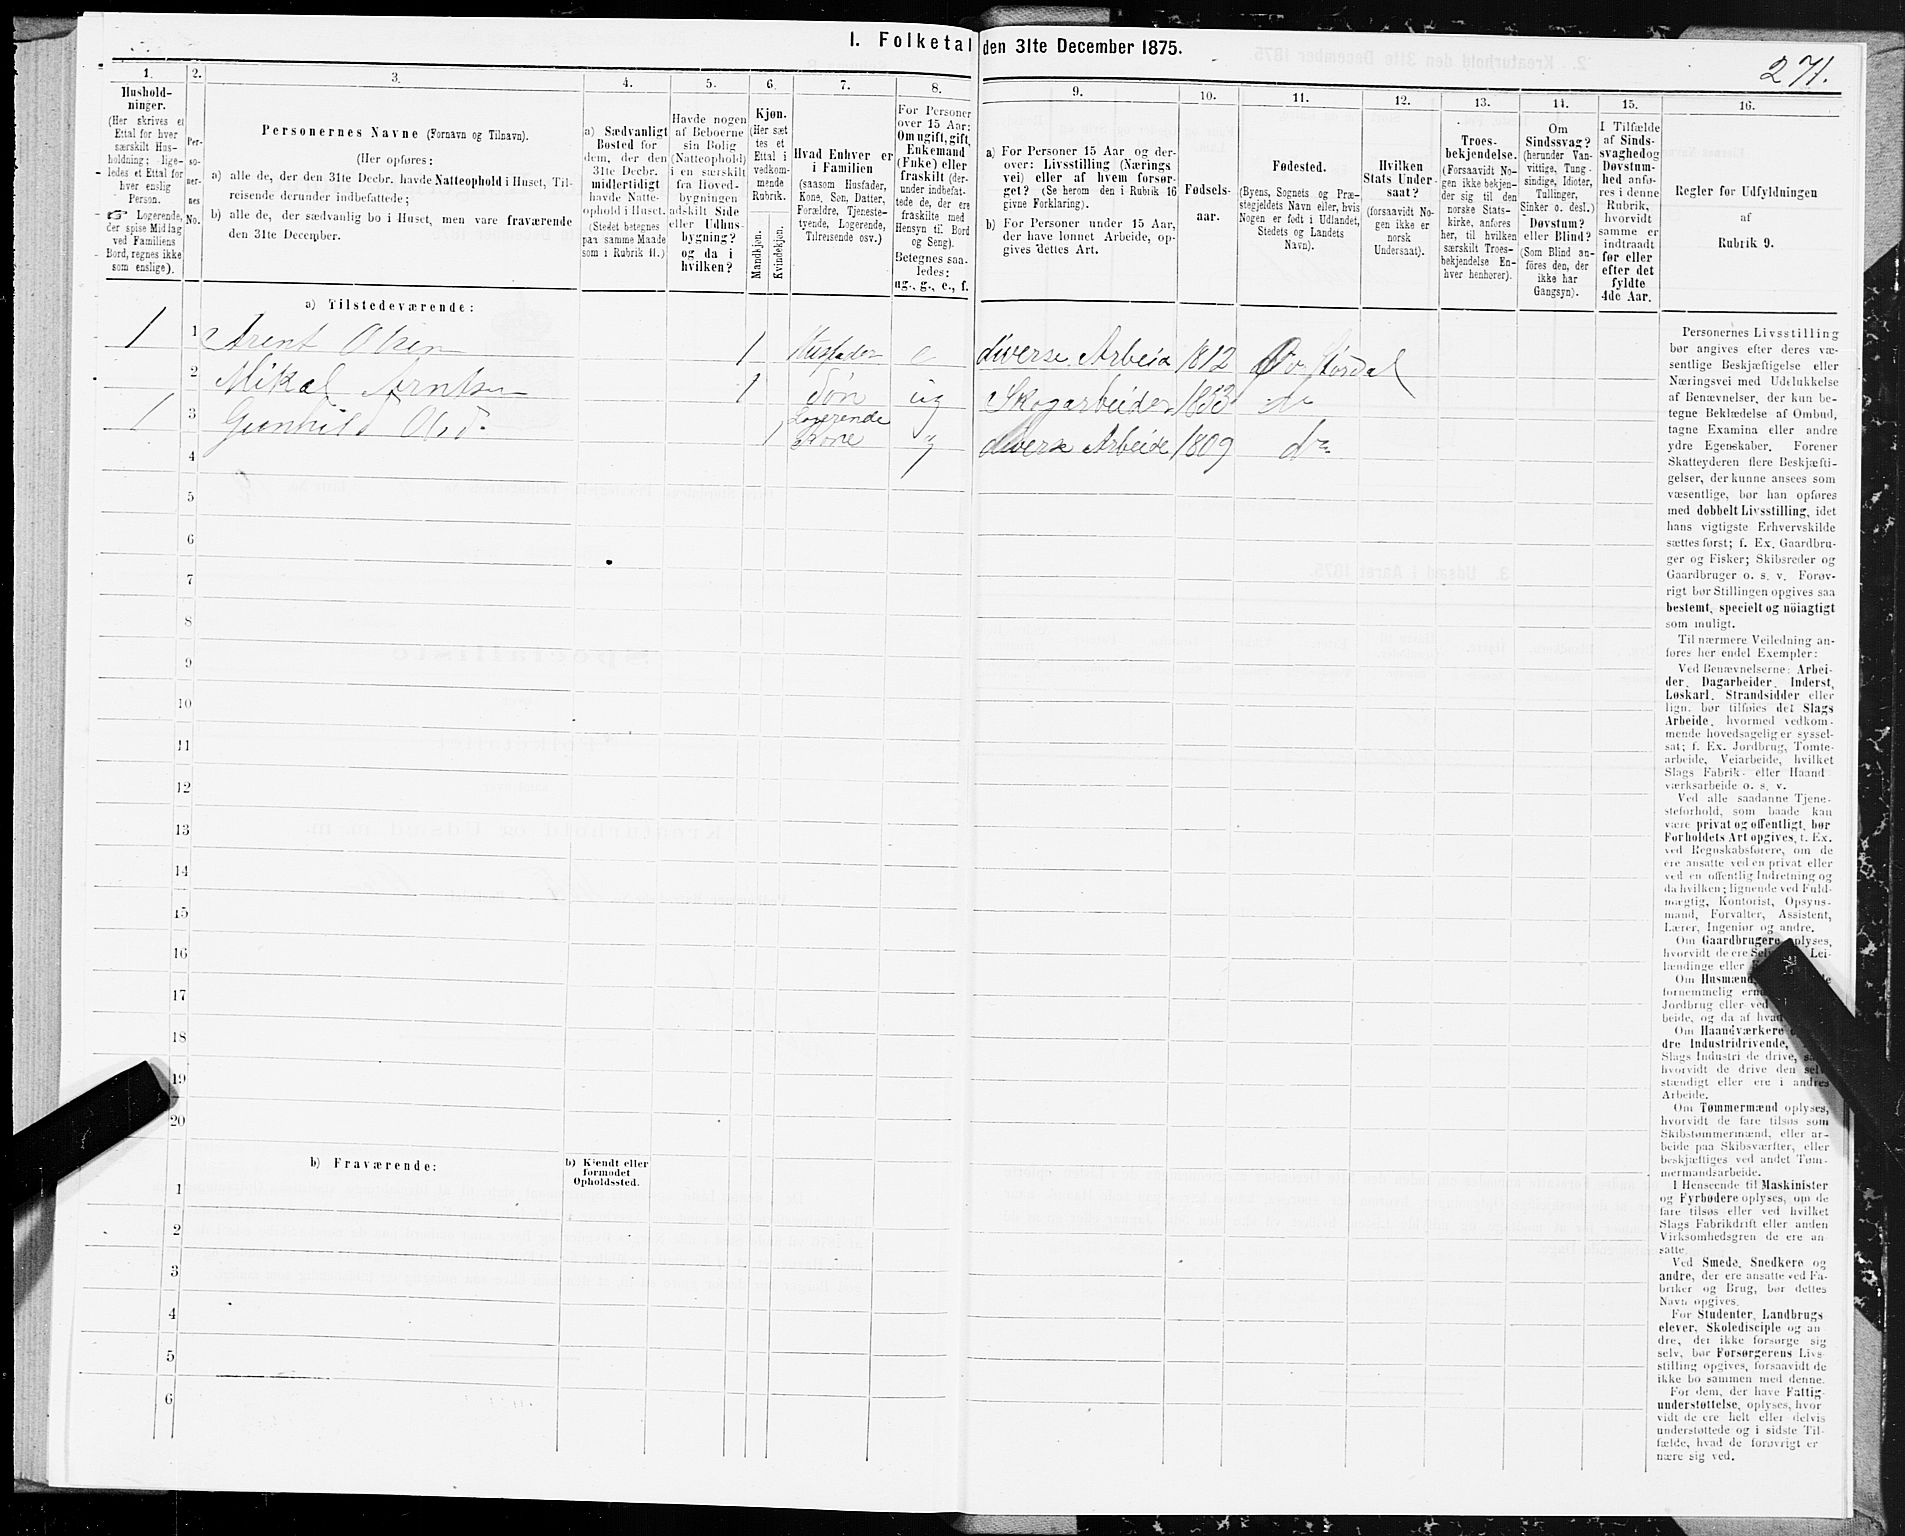 I. Folketal den 31te December 1875.
271.
1.
2.
3.
4.
5.
6.
7.
8.
9.
10.
11.
12.
13.
14.
15.
16.
Hushold-
ninger.
(Her skrives et
Ettal for hver
særskilt Hus-
holdning; lige-
ledes et Ettal for
hver enslig
Person.
☞ Logerende,
der spise Middag
ved Familiens
Bord, regnes ikke
som enslige).
Per-
so-
ner-
nes
No.
Personernes Navne (Fornavn og Tilnavn).
(Her opføres:
a) alle de, der den 31te Decbr. havde Natteophold i Huset, Til-
reisende derunder indbefattede;
b) alle de, der sædvanlig bo i Huset, men vare fraværende
den 31te December.
a) Sædvanligt
Bosted for
dem, der den
31te Decbr.
midlertidigt
havde Natte-
ophold i Huset.
(Stedet betegnes
paa samme Maade
som i Rubrik 11.)
Havde nogen
af Beboerne
sin Bolig
(Natteophold)
i en særskilt
fra Hoved-
bygningen
adskilt Side
eller Udhus-
bygning?
og da i
hvilken?
Kjøn.
(Her sæt
tes et
Ettal i
vedkom-
mende
Rubrik.
Mandkjøn.
Kvindekjøn.
Hvad Enhver er
i Familien
(saasom Husfader,
Kone, Søn, Datter,
Forældre, Tjeneste-
tyende, Logerende,
Tilreisende osv.)
For Personer
over 15 Aar:
Om ugift, gift,
Enkemand
(Enke) eller
fraskilt (der-
under indbefat-
tede de, der ere
fraskilte med
Hensyn til Bord
og Seng).
Betegnes saa-
ledes:
ug., g., e., f.
a) For Personer 15 Aar og der-
over: Livsstilling (Nærings
vei) eller af hvem forsør-
get? (Se herom den i Rubrik 16
givne Forklaring).
b) For Personer under 15 Aar,
der have lønnet Arbeide, op-
gives dettes Art.
Fødsels-
aar.
Fødested.
(Byens, Sognets og Præ-
stegjeldets Navn eller, hvis
Nogen er født i Udlandet,
Stedets og Landets
Navn).
Hvilken
Stats Under-
saat?
(forsaavidt No-
gen ikke er
norsk
Undersaat).
Troes-
bekjendelse.
(Forsaavidt No-
gen ikke bekjen-
der sig til den
norske Stats-
kirke, anføres
her, til hvilken
særskilt Troes-
bekjendelse En-
hver henhører).
Om
Sindssvag?
(herunder Van-
vittige, Tung-
sindige, Idioter,
Tullinger,
Sinker o. desl.)
Døvstum?
eller Blind?
(Som Blind an-
føres den, der
ikke har
Gangsyn).
I Tilfælde
af Sinds-
svaghed og
Døvstum-
hed anfø-
res i denne
Rubrik,
hvorvidt
samme er
indtraadt
før eller
efter det
fyldte
4de Aar.
Regler for Udfyldningen
af
Rubrik 9.
a) Tilstedeværende:
1 1 Arent Olsen 1 Husfader e diverse Arbeid 1812 Øv. Stordal
2 Mikal Arntsen 1 Søn ug Skogarbeider 1853 do
1 3 Gunhild Olsd. 1 Logerende Kone g diverse Arbeide 1809 do
4
5
6
7
8
9
10
11
12
13
14
15
16
17
18
19
20
b) Fraværende:
b) Kjendt eller
formodet
Opholdssted.
1
2
3
4
5
6
Personernes Livsstilling
bør angives efter deres væ-
sentlige Beskjæftigelse eller
Næringsvei med Udelukkelse
af Benævnelser, der kun be-
tegne Beklædelse af Ombud,
tagne Examina eller andre
ydre Egenskaber. Forener
Skatteyderen flere Beskjæfti-
gelser, der kunne ansees som
væsentlige, bør han opføres
med dobbelt Livsstilling, idet
hans vigtigste Erhvervskilde
sættes først; f. Ex. Gaardbru-
ger og Fisker; Skibsreder og
Gaardbruger o. s. v. Forøv-
rigt bør Stillingen opgives saa
bestemt, specielt og nöiagtigt
som muligt.
Til nærmere Veiledning an-
føres her endel Exempler:
Ved Benævnelserne: Arbei-
der, Dagarbeider, Inderst,
Løskarl, Strandsidder eller
lign. bør tilføies det Slags
Arbeide, hvormed vedkom-
mende hovedsagelig er syssel-
sat; f. Ex. Jordbrug, Tomte-
arbeide, Veiarbeide, hvilket
Slags Fabrik- eller Haand
værksarbeide o. s. v.
Ved alle saadanne Tjene-
steforhold, som baade kan
være privat og offentligt, bør
Forholdets Art opgives, t. Ex.
ved Regnskabsførere, om de
ere ansatte ved en privat eller
ved en offentlig Indretning og
da hvilken; lignende ved Fuld-
mægtig, Kontorist, Opsyns-
mand, Forvalter, Assistent,
Lærer, Ingeniør og andre.
Om Gaardbrugere oplyses,
hvorvidt de ere Lei-
lændinge eller
Om Husmænd
fornemmelig
Jordbrug eller ved
beide, og da af hvad
Om Haandværkere
dre Industridrivende,
Slags Industri de drive,
hvorvidt de drive den selv
stændigt eller ere i andres
Arbeide.
Om Tømmermænd oplyses,
hvorvidt de fare tilsøs som
Skibstømmermænd, eller ar-
beide paa Skibsværfter, eller
beskjæftiges ved andet Tøm-
mermandsarbeide.
I Henseende til Maskinister
og Fyrbødere oplyses, om de
fare tilsøs eller ved hvilket
Slags Fabrikdrift eller anden
Virksomhedsgren de ere an-
satte.
Ved Smede, Snedkere og
andre, der ere ansatte ved Fa-
briker og Brug, bør dettes
Navn opgives.
For Studenter, Landbrugs
elever, Skoledisciple og an
dre, der ikke forsørge sig
selv, bør Forsørgerens Livs-
stilling opgives, forsaavidt de
ikke bo sammen med denne.
For dem, der have Fattig-
understøttelse, oplyses, hvor
vidt de ere helt eller delvis
understøttede og i sidste Til-
fælde, hvad de forøvrigt er
nære sig ved.